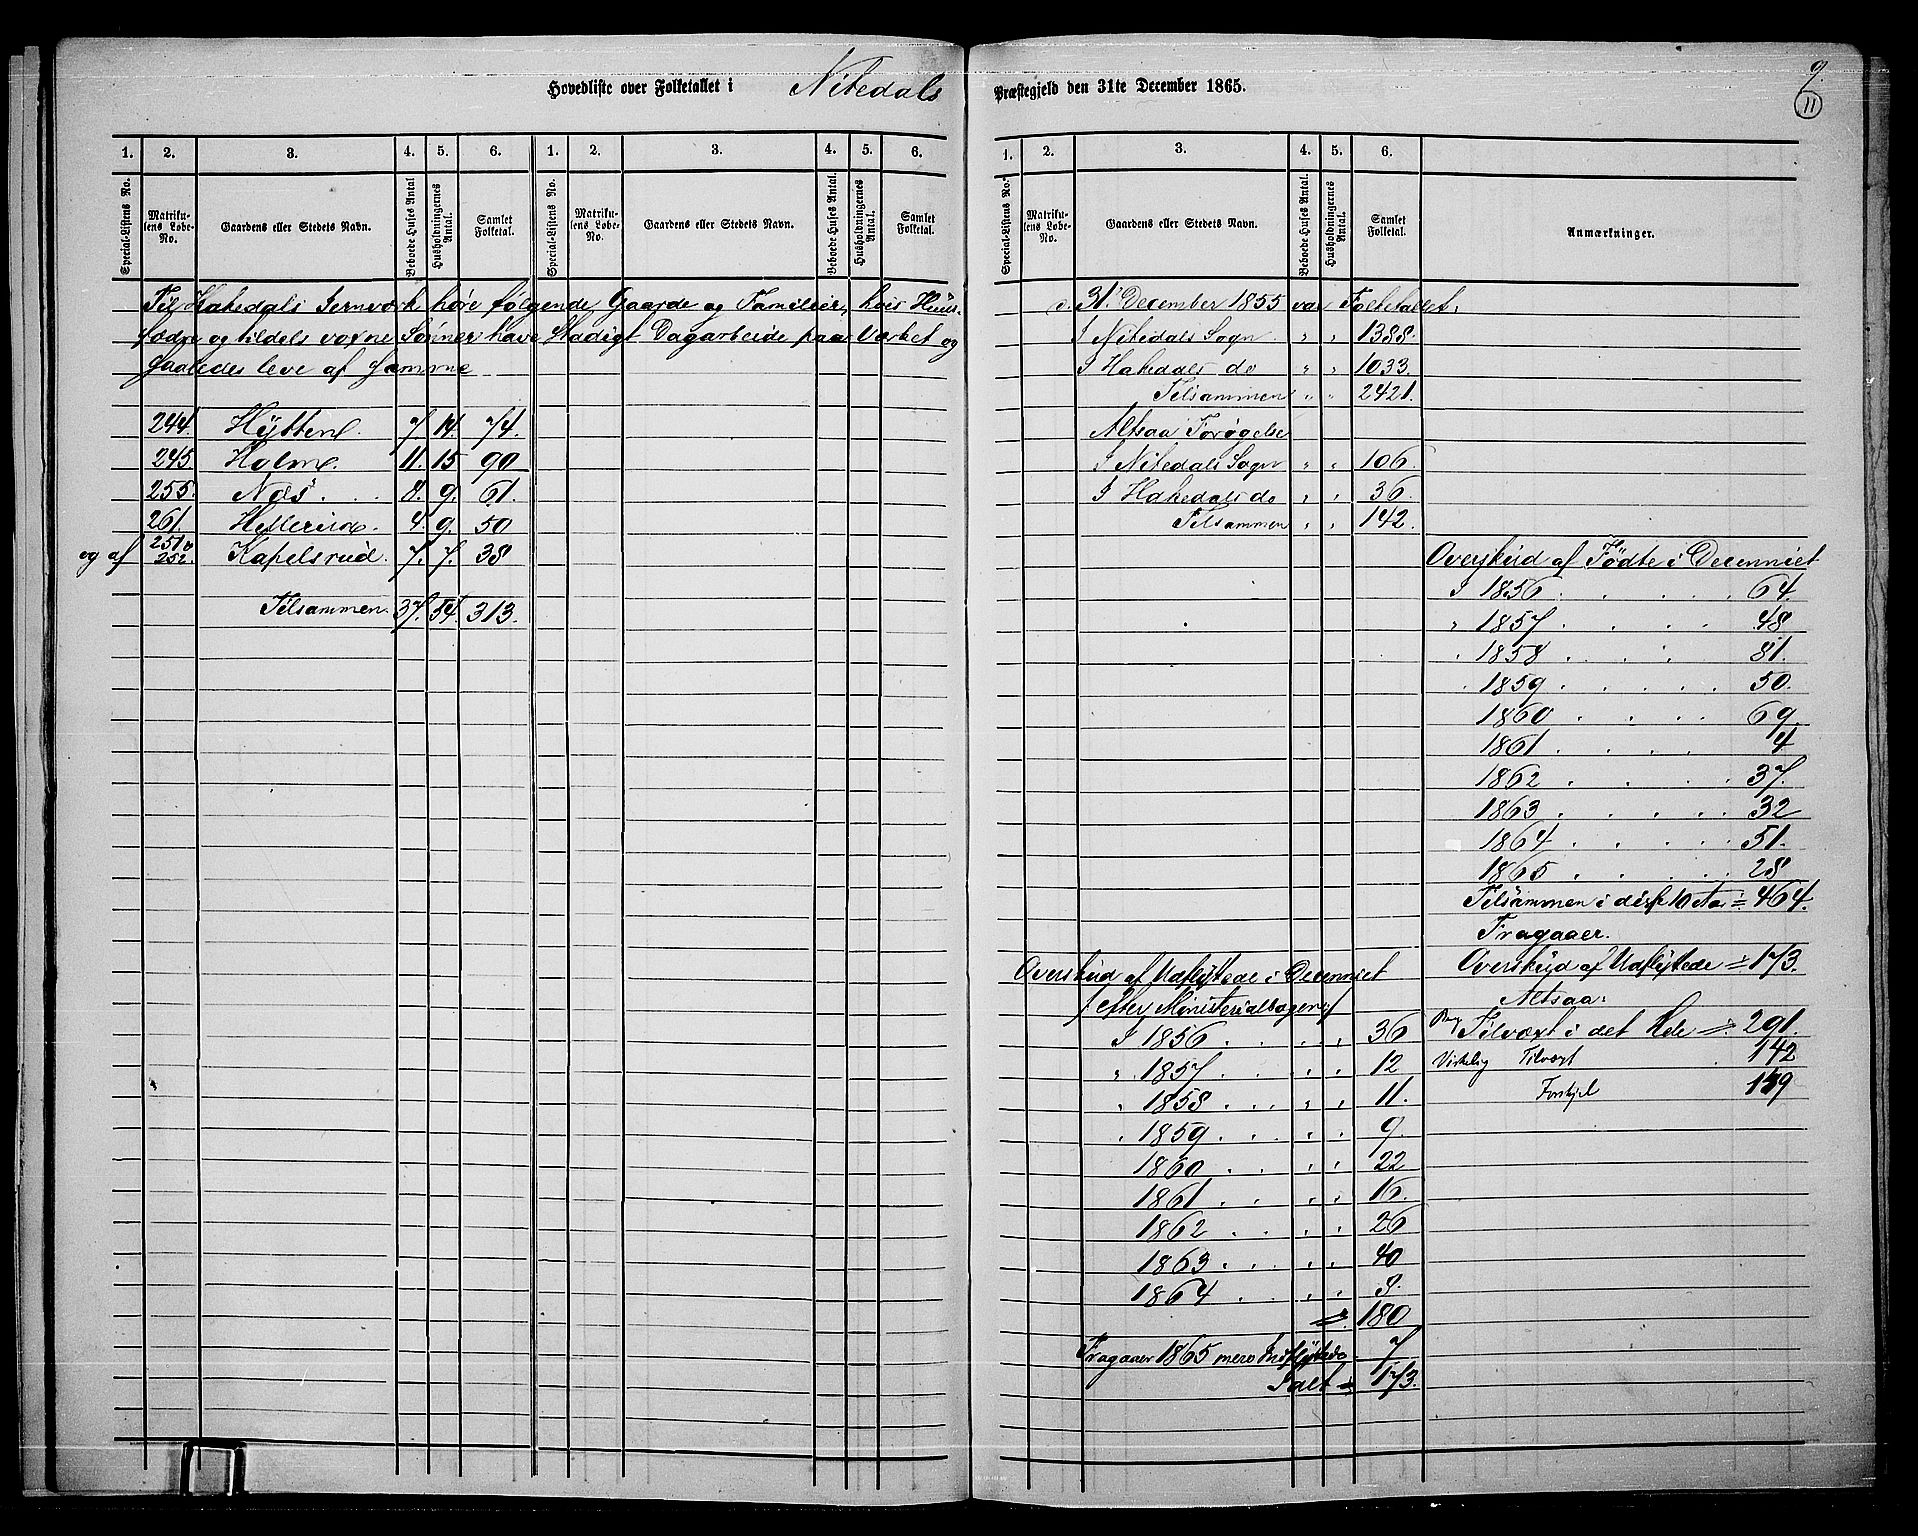 9
11
Hovedliste over Folketallet i Nitedals Præstegjeld den 31te December 1865.
1. 2. 3. 4. 5. 6. 1. 2. 3. 4. 5. 6.
Special-Listens No. Matrikulens Løbe-No. Gaardens eller Stedets Navn. Beboede Huses Antal Husholdningernes Antal. Samlet Folketal. Special-Listens No. Matrikulens Løbe-No. Gaardens eller Stedets Navn. Beboede Huses Antal. Husholdningernes Antal. Samlet Folketal.
Til Hakedals Jernværk høre følgende Gaarde og Familier, hvis Huus-
fædre og tildels voxne Sønner have stadigt Dagarbeide paa Værket og
saaledes leve af samme
244. Hytten 7. 14. 74.
245 Holm. 11. 15 90
255. Næs. 8. 9. 61.
261. Hellerud. 4. 9. 50
og af 251 & 252. Kapelsrud. 7. 7. 38
Tilsammen. 37. 54. 313.
1. 2. 3. 4. 5. 6.
Special-Listens No. Matrikulens Løbe-No. Gaardens eller Stedets Navn. Beboede Huses Antal. Husholdningernes Antal. Samlet Folketal. Anmærkninger.
d. 31. December 1855 var Folketallet:
I Nitedals Sogn " " 1388.
I Hakedals do " " 1033.
Tilsammen " " 2421.
Altsaa Forøgelse
I Nitedals Sogn " " 106.
I Hakedals do " " 36.
Tilsammen " " 142.
Overskud af Udflyttede i Decenniet
/: efter Ministerialbogen :/
I 1856 . . . " " 36
" 1857 . . " " 12
" 1858 . . . " " 11.
" 1859 . . . " " 9.
1860 . . " " 22
1861 . . " " 16.
1862 . . . " " 26
1863 . . . " " 40
1864 . . " " 8.
= 180
Fragaaer 1865 mere Indflyttede 7
Ialt = 173.
Overskud af Födte i Decenniet
I 1856 . . . . . 64.
" 1857 . . . . 48
" 1858 . . . . 81.
" 1859 . . . . . 50.
1860 . . . . 69.
1861 . . . . 4
1862 . . . . 37.
1863 . . . . . 32
1864 . . . . . 51.
1865 . . . . . 28
Tilsammen i disse 10 Aar = 464.
Fragaaer.
Overskud af Udflyttede = 173.
Altsaa:
Tilvæxt i det Hele = 291.
Virkelig Tilvæxt . 142
Forskjel 149